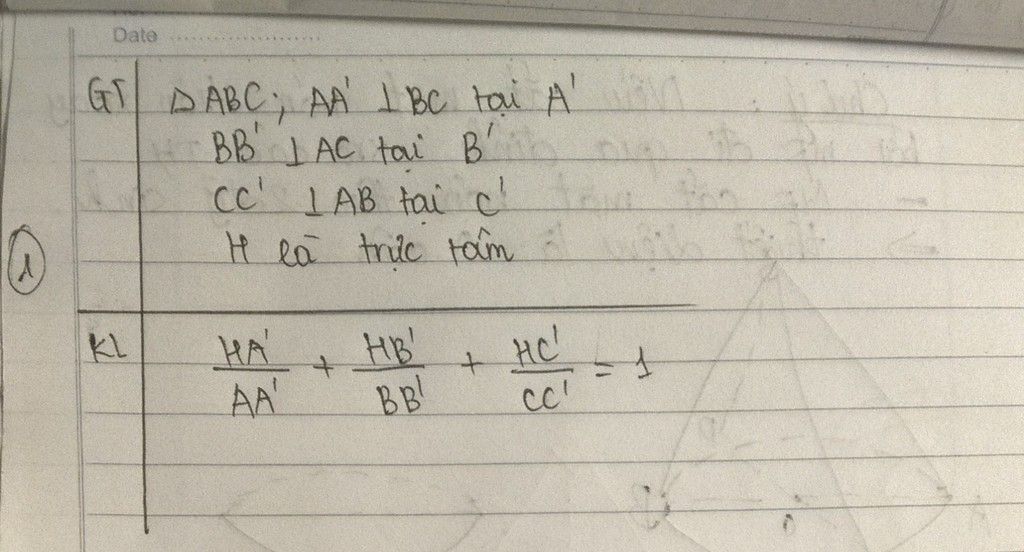 Date
GT △ABC; AA' ⊥BC tại A'
BB' ⊥AC tại B'
CC' ⊥AB tại C'
H là trực tâm
1
KL HA'/AA' + HB'/BB' + HC'/CC' = 1